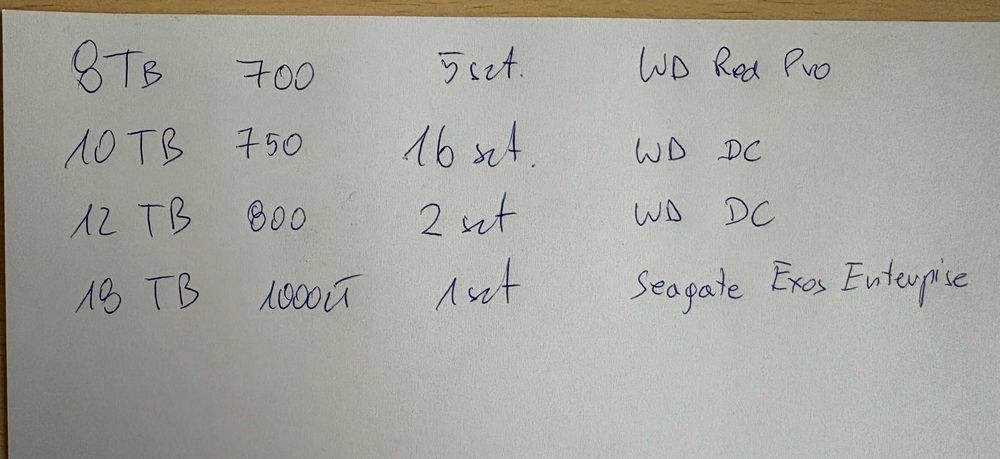 8TB 700 5 szt. WD Red Pro
10 TB 750 16 szt. WD DC
12 TB 800 2 szt WD DC
18 TB 1000zł 1 szt Seagate Exos Enterpise